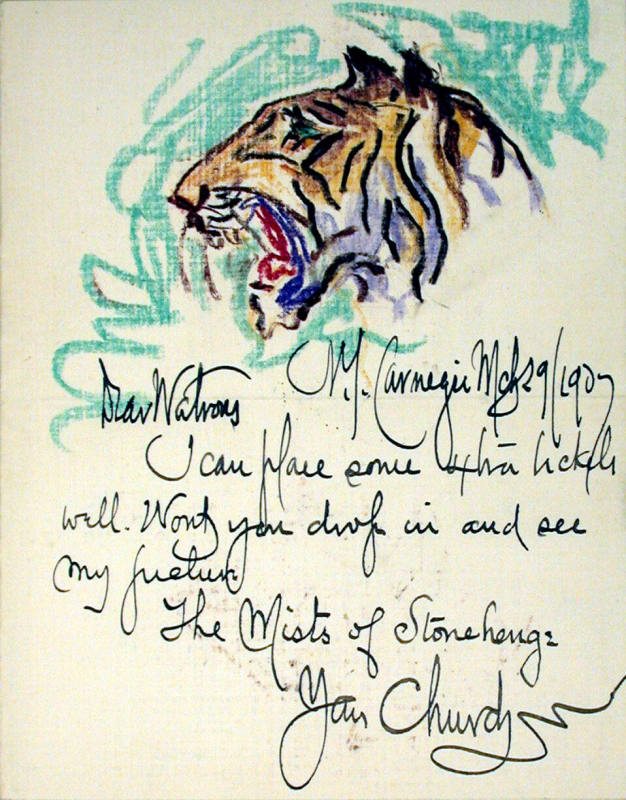 N.Y. Carnegie Mch 29/1907
Dear Watrous
I can place some extra tickets
well. Wont you drop in and see
my picture
The Mists of Stonehenge
Yours Church